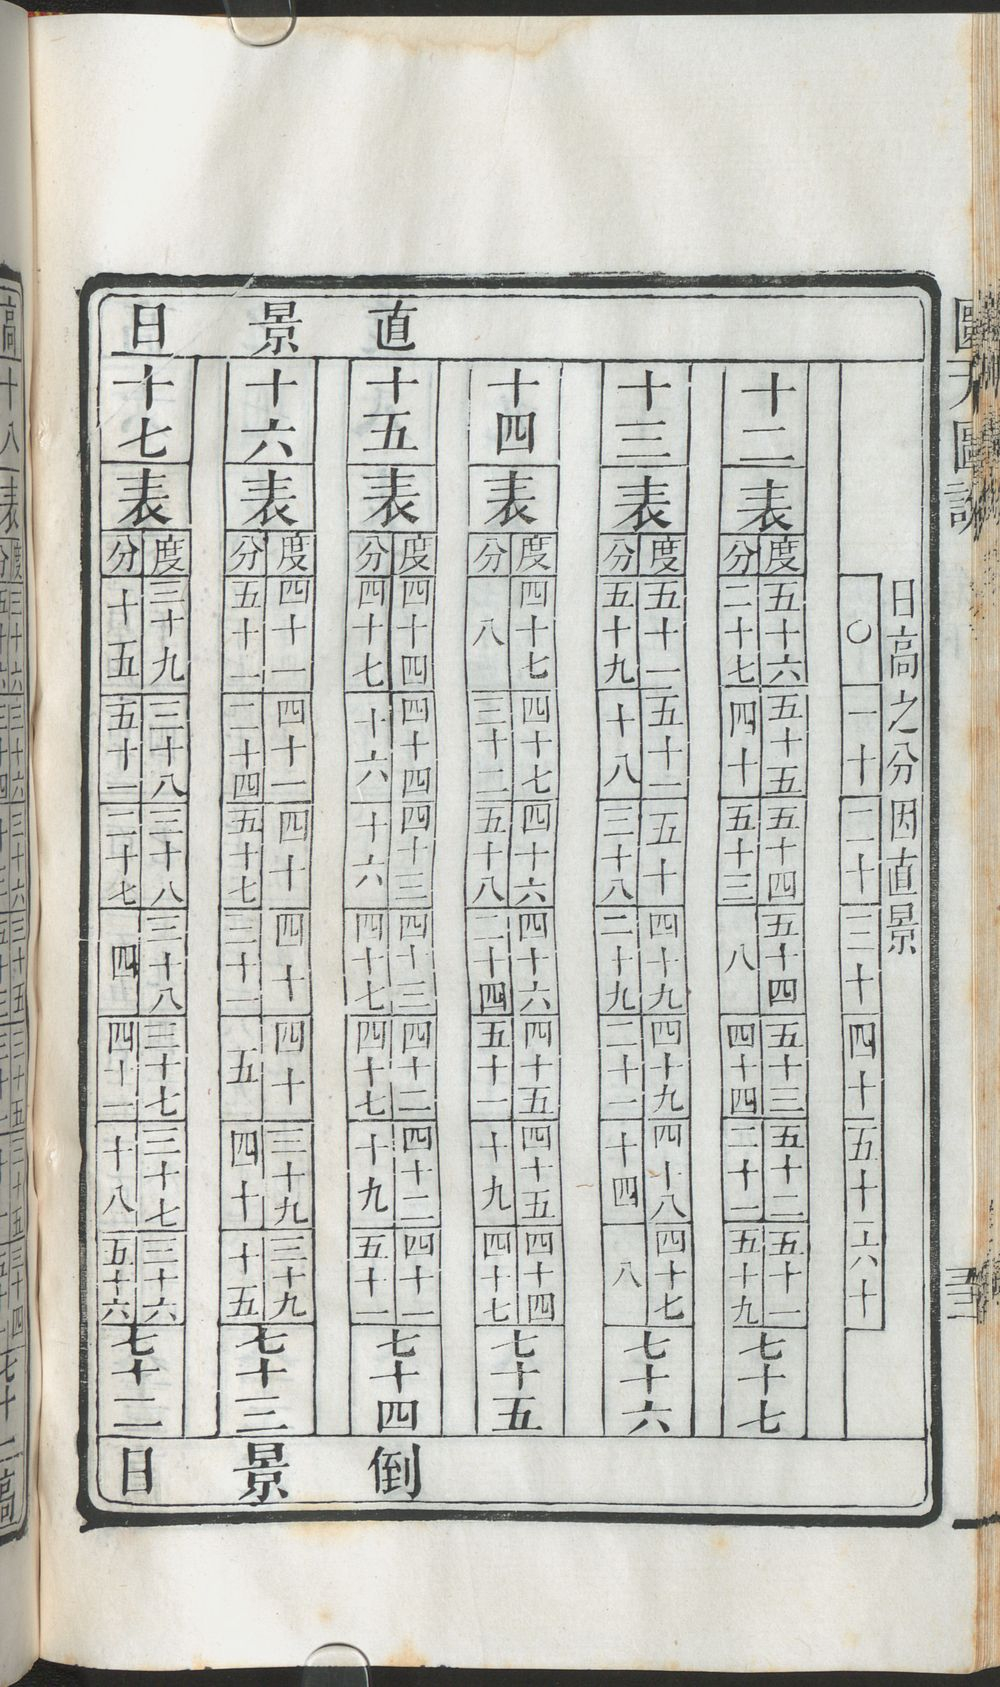 圜天圖說
日高之分因直景
〇 一十 二十 三十 四十 五十 六十
直景日
十二 表
度 五十六 五十五 五十四 五十四 五十三 五十二 五十一
分 二十七 四十 五十三 八 四十四 二十一 五十九
七十七
十三 表
度 五十一 五十一 五十 四十九 四十九 四十八 四十七
分 五十九 十八 三十八 二十九 二十一 十四 八
七十六
十四 表
度 四十七 四十七 四十六 四十六 四十五 四十五 四十四
分 八 三十二 五十八 二十四 五十一 十九 四十七
七十五
十五 表
度 四十四 四十四 四十三 四十三 四十二 四十二 四十一
分 四十七 十六 十六 四十七 四十七 十九 五十一
七十四
十六 表
度 四十一 四十一 四十 四十 四十 三十九 三十九
分 五十一 二十四 五十七 三十一 五 四十 十五
七十三
十七 表
度 三十九 三十八 三十八 三十八 三十七 三十七 三十六
分 十五 五十一 二十七 四 四十一 十八 五十六
七十二
倒景日
高
十八 表
度 三十六 三十六 三十六 三十五 三十五 三十五 三十四
七十一
高